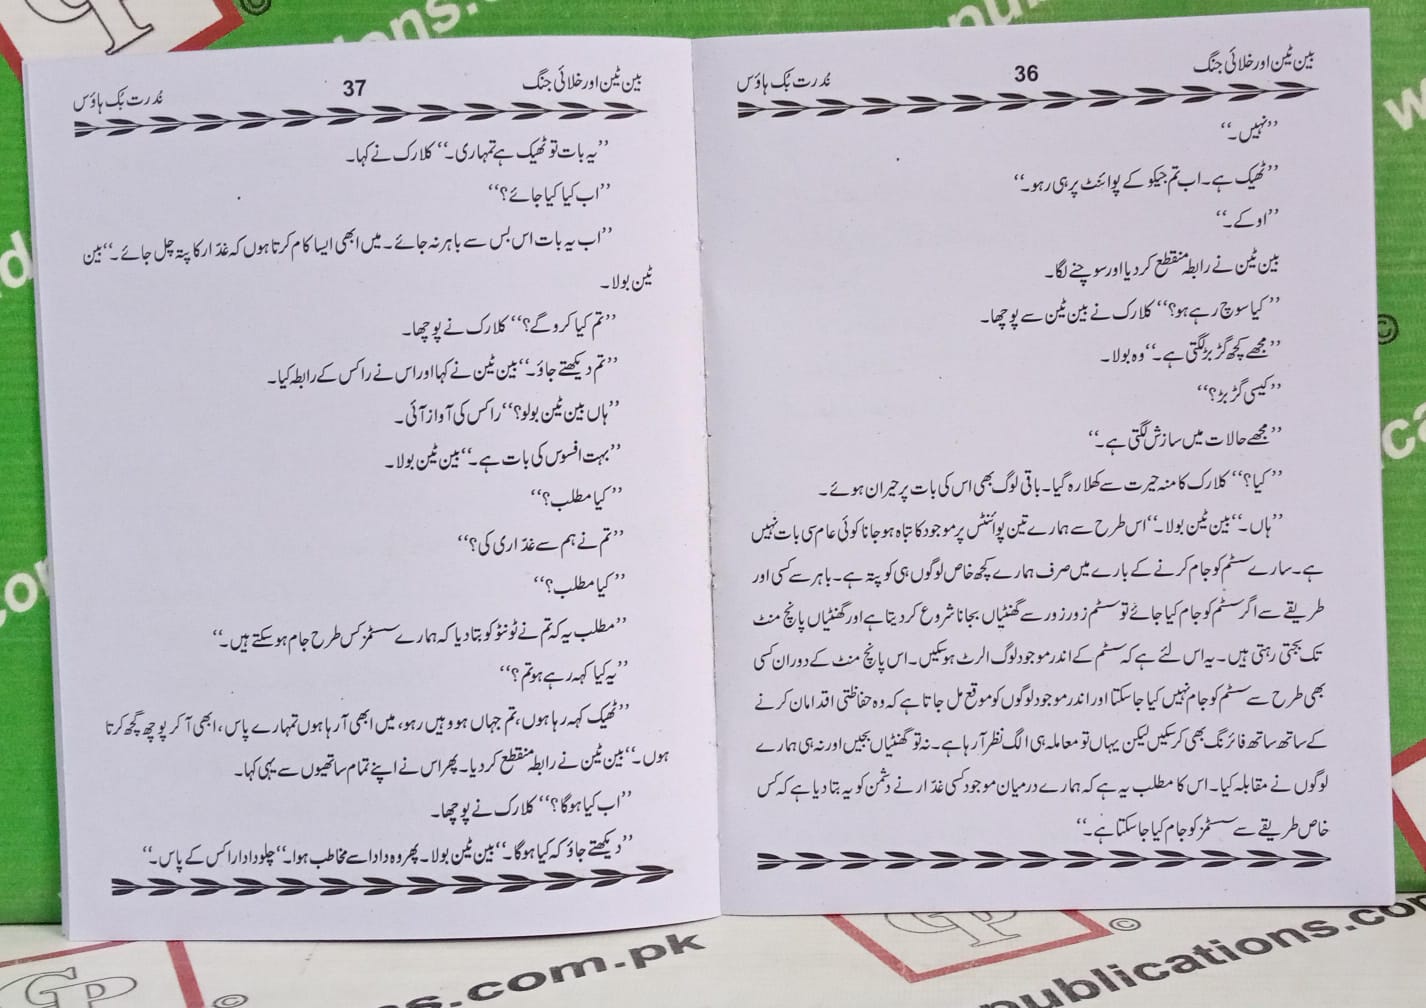 بین ٹین اور خلائی جنگ 36 نُدرت بُک ہاؤس
’’نہیں۔‘‘
’’ٹھیک ہے۔ اب تم جیکو کے پوائنٹ پر ہی رہو۔‘‘
’’اوکے۔‘‘
بین ٹین نے رابطہ منقطع کردیا اور سوچنے لگا۔
’’کیا سوچ رہے ہو؟‘‘ کلارک نے بین ٹین سے پوچھا۔
’’مجھے کچھ گڑبڑ لگتی ہے۔‘‘ وہ بولا۔
’’کیسی گڑبڑ؟‘‘
’’مجھے حالات میں سازش لگتی ہے۔‘‘
’’کیا؟‘‘ کلارک کا منہ حیرت سے کھلا رہ گیا۔ باقی لوگ بھی اس کی بات پر حیران ہوئے۔
’’ہاں۔‘‘ بین ٹین بولا۔ ’’اس طرح سے ہمارے تین پوائنٹس پر موجود کا تباہ ہو جانا کوئی عام سی بات نہیں
ہے۔ سارے سسٹم کو جام کرنے کے بارے میں صرف ہمارے کچھ خاص لوگوں ہی کو پتہ ہے۔ باہر سے کسی اور
طریقے سے اگر سسٹم کو جام کیا جائے تو سسٹم زور زور سے گھنٹیاں بجانا شروع کردیتا ہے اور گھنٹیاں پانچ منٹ
تک بجتی رہتی ہیں۔ یہ اس لئے ہے کہ سسٹم کے اندر موجود لوگ الرٹ ہوسکیں۔ اس پانچ منٹ کے دوران کسی
بھی طرح سے سسٹم کو جام نہیں کیا جاسکتا اور اندر موجود لوگوں کو موقع مل جاتا ہے کہ وہ حفاظتی اقدامان کرنے
کے ساتھ ساتھ فائرنگ بھی کرسکیں لیکن یہاں تو معاملہ ہی الگ نظر آرہا ہے۔ نہ تو گھنٹیاں بجیں اور نہ ہی ہمارے
لوگوں نے مقابلہ کیا۔ اس کا مطلب یہ ہے کہ ہمارے درمیان موجود کسی غدّار نے دشمن کو یہ بتا دیا ہے کہ کس
خاص طریقے سے سسٹمز کو جام کیا جاسکتا ہے۔‘‘
بین ٹین اور خلائی جنگ 37 نُدرت بُک ہاؤس
’’یہ بات تو ٹھیک ہے تمہاری۔‘‘ کلارک نے کہا۔
’’اب کیا کیا جائے؟‘‘
’’اب یہ بات اس بس سے باہر نہ جائے۔ میں ابھی ایسا کام کرتا ہوں کہ غدّار کا پتہ چل جائے۔‘‘ بین
ٹین بولا۔
’’تم کیا کرو گے؟‘‘ کلارک نے پوچھا۔
’’تم دیکھتے جاؤ۔‘‘ بین ٹین نے کہا اور اس نے راکس کے رابطہ کیا۔
’’ہاں بین ٹین بولو؟‘‘ راکس کی آواز آئی۔
’’بہت افسوس کی بات ہے۔‘‘ بین ٹین بولا۔
’’کیا مطلب؟‘‘
’’تم نے ہم سے غدّاری کی؟‘‘
’’کیا مطلب؟‘‘
’’مطلب یہ کہ تم نے ٹونٹو کو بتا دیا کہ ہمارے سسٹمز کس طرح جام ہوسکتے ہیں۔‘‘
’’یہ کیا کہہ رہے ہو تم؟‘‘
’’ٹھیک کہہ رہا ہوں، تم جہاں ہو وہیں رہو، میں ابھی آرہا ہوں تمہارے پاس، ابھی آ کر پوچھ گچھ کرتا
ہوں۔‘‘ بین ٹین نے رابطہ منقطع کردیا۔ پھر اس نے اپنے تمام ساتھیوں سے یہی کہا۔
’’اب کیا ہوگا؟‘‘ کلارک نے پوچھا۔
’’دیکھتے جاؤ کہ کیا ہوگا۔‘‘ بین ٹین بولا۔ پھر وہ دادا سے مخاطب ہوا۔ ’’چلو دادا راکس کے پاس۔‘‘
s.com.pk
publications.com
GP
©